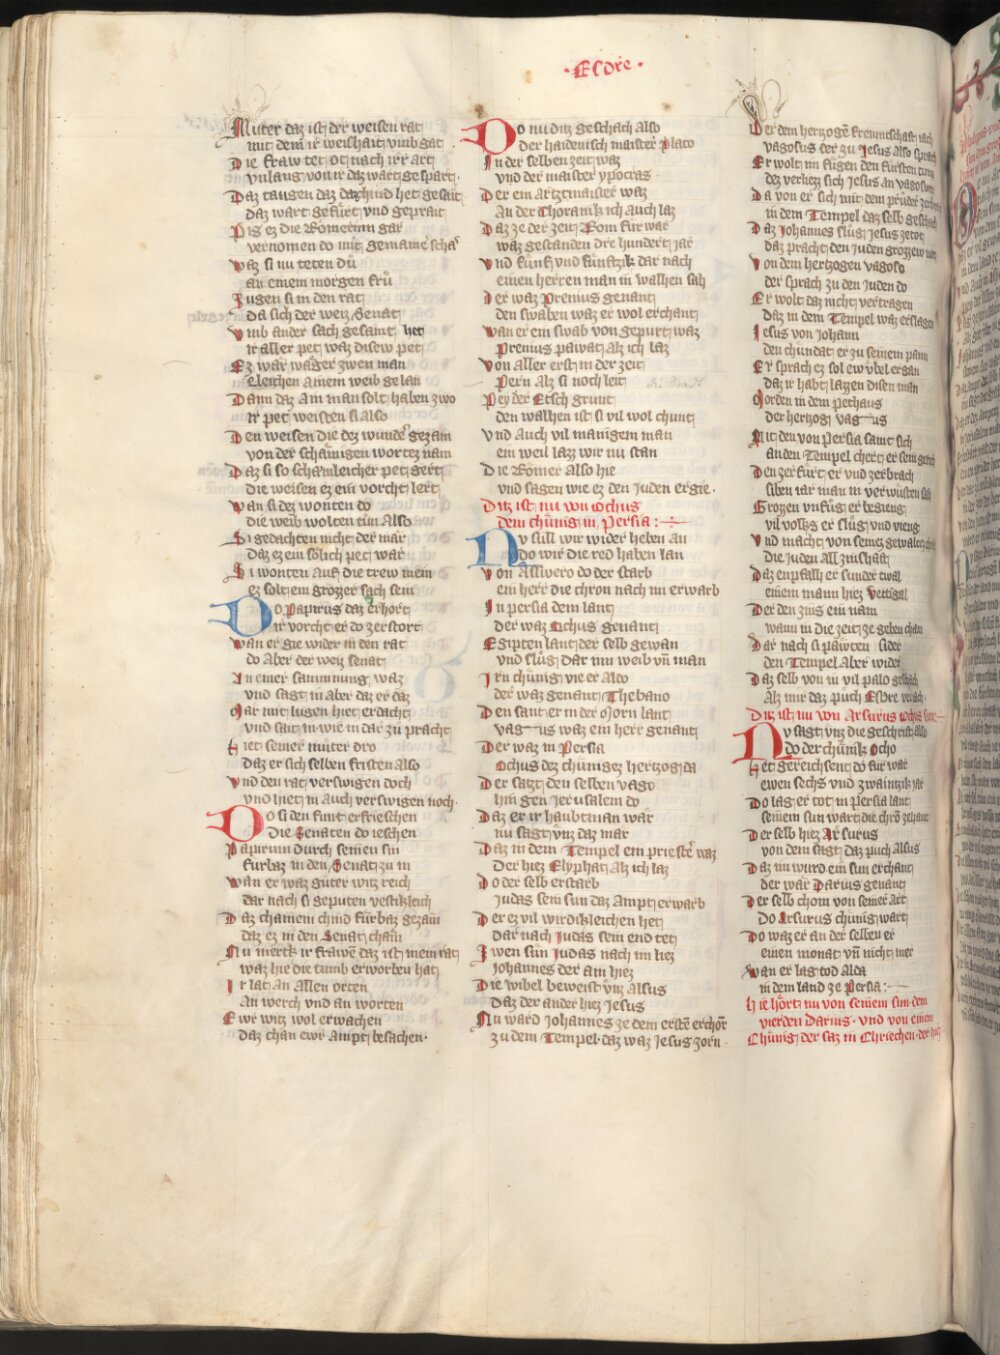 · Esdre ·
Muter daz ist der weisen rat
mit dem ir weishait umb gat
Die fraw tet ot nach irr art
unlang von ir daz wart gespart.
Daz taugen daz daz chind het gesait
daz wart gefürt und geprait
Pis ez die Römerinn gar
vernomen do mit gemainer schar
Waz si nu teten du
an einem morgen fru
Jugen si in den rat
da sich der weiz Senat
Umb ander sach gesamt het
ir aller pet waz disew pet
Ez wär wäger zwen man
Eleichen ainem weib gelan
Dann daz ain man solt haben zwo
ir pet weisten si also
Den weisen die dez wunder gezam
von der schämigen wortez nam
Daz si so schamleicher pet gert
die weisen ez ein vorcht lert
Wan si dez wonten do
die weib wolten tun also
Si gedachten nicht der mär
daz ez ein sölich pet wär
Si wonten auf die trew mein
ez solt ein grozzer sach sein
Do Papirus daz erhort
ir vorcht er do zerstort
Wan er gie wider in den rat
do aber der weiz senat
In einer samnung waz
und sagt in aber daz er daz
Mär mit lugen hiet erdacht
und sait in wie in dar zu pracht
Hiet seiner muter dro
daz er sich selben fristen also
Und den rat verswigen doch
und hiet in auch verswigen noch.
Do si den funt erfrieschen
Die Senaten do ieschen
Papirum durch seinen sin
fürbaz in den Senat zu in
Wan er waz guter witz reich
dar nach si geputen vestikleich
Daz chainem chind fürbaz gezam
daz ez in den Senat cham
Nu merck ir frawen daz ist mein rat
waz hie die tumb erworben hat
Ir lat an allen orten
an werch und an worten
Ewr witz wol erwachen
daz chan ewr ampt besachen.
Do nu ditz geschach also
der haidenisch maister Plato
In der selben zeit waz
und der maister ypocras.
Der ein artztmaister waz
an der Choranik ich auch laz
Daz ze der zeit Rom fur war
waz gestanden dre hundert iar
Und funf und funftzik dar nach
einen herren man in walhen sah
Der waz Prenius genant
den swaben waz er wol erchant
Wan er ein swab von gepurt waz
Prenius pawat alz ich laz
Von aller erst in der zeit
Pern alz si noch leit
Pey der Etsch grunt
den walhen ist si vil wol chunt
Und auch vil manigem man
ein weil lazz wir nu stan
Die Römer also hie
und sagen wie ez den Juden ergie.
Ditz ist nu von Ochus
dem chünig in Persia :
Nu sull wir wider heben an
do wir die red haben lan
Von Asswero do der starb
ein herr die chron nach im erwarb
In persia dem lant
der waz Ochus genant
Egipten lant der selb gewan
und slug dar inn weib und man
Irn chünig vie er also
der waz genant Thebano
Den sant er in der Morn lant
vagosus waz ein herr genant
Der waz in Persia
Ochus dez chüniges hertzog da
Der sazt den selben vago
hin gen Jerusalem do
Daz er ir haubtman war
nu sagt unz daz mär
Daz in dem Tempel ein priester waz
Der hiez Elyphat alz ich laz
Do der selb erstarb
Judas sein sun daz ampt erwarb
Der ez vil wirdikleichen het
dar nach Judas sein end tet
Zwen sün Judas nach im liez
Johannes der ain hiez
Die wibel beweist unz alsus
daz der ander hiez Jesus
Nu ward Johannes ze dem ersten erchorn
zu dem Tempel. daz waz Jesus zorn.
Der dem hertzogen freuntschaft iach
vagosus der zu Jesus also sprach
Er wolt im fügen den fürsten tum
dez verliez sich Jesus an vagosum
Da von er sich mit dem pruder
in dem Tempel daz selb geschach
Daz Johannes slug Jesus ze tot
daz pracht den Juden grozzew not
Von dem hertzogen vagoso
der sprach zu den Juden do
Er wolt daz nicht vertragen
daz in dem Tempel waz erslagen
Jesus von Johann
den chundat er zu seinem pann
Er sprach ez sol ew ubel ergan
daz ir habt lazzen disen man
Morden in dem pethaus
der hertzog vagosus
Mit den von Persia samt sich
an den Tempel chert er sein gerich
Den zerfürt er und zerbrach
siben iar man in verwusten sach
Grozzen unfug er begieng
vil volks er slug und vieng
Und macht von seinez gewaltez
die Juden all zinshaft
Daz enpfalh er sunder twal
einem man hiez Vettigal
Der den zins ein nam
wann in die zeit ze geben cham
Dar nach si pawten sider
den Tempel aber wider
Daz selb von in vil palo geschach
Alz mir daz puch Esdre veriach.
Ditz ist nu von Arsurus Ochus sun
Nu sagt unz die geschrift also
do der chünik Ocho
Het gereichsent do fur war
ewen sechs und zwaintzik iar
Do lag er tot in Persia lant
seinem sun wart die chron zehant
Der selb hiez Arsurus
von dem sagt daz puch alsus
Daz im wurd ein sun erchant
der war Darius genant
Der selb chom von seiner art
Do Arsurus chünig wart
Do waz er an der selben er
einen monat und nicht mer
Wan er lag tod alda
in dem land ze Persia :
Hie hört nu von seinem sun dem
vierden Darius. und von einem
Chünig der saz in Chriechen. der hiez